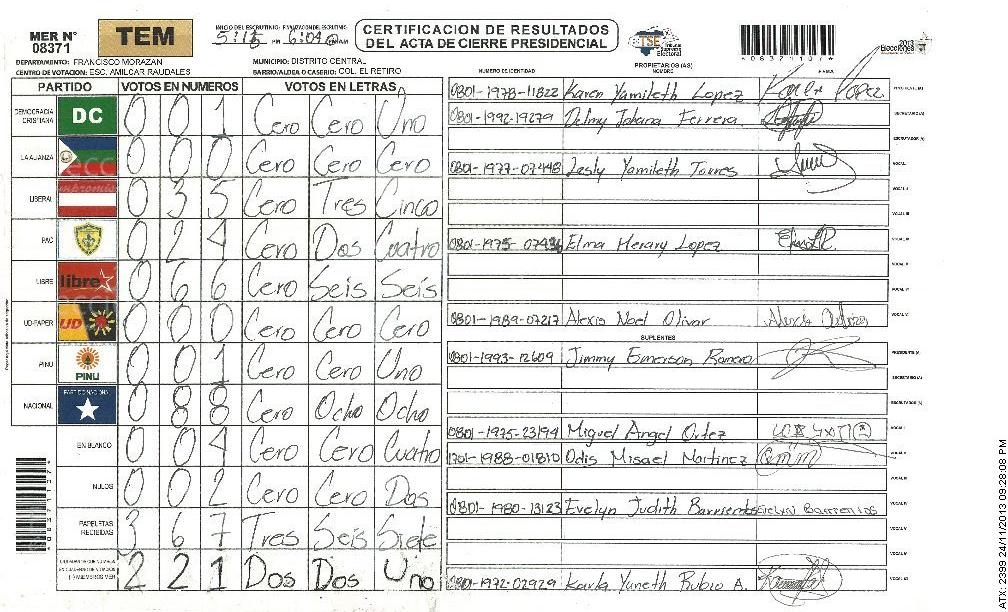 MER N° 08371
TEM
INICIO DEL ESCRUTINIO: FINALIZACION DEL ESCRUTINIO:
5:15 PM 6:04
CERTIFICACION DE RESULTADOS
DEL ACTA DE CIERRE PRESIDENCIAL
TSE Tribunal Supremo Electoral
*08371107*
2013 Elecciones
DEPARTAMENTO: FRANCISCO MORAZAN
MUNICIPIO: DISTRITO CENTRAL
CENTRO DE VOTACION: ESC. AMILCAR RAUDALES
BARRIO/ALDEA O CASERIO: COL. EL RETIRO
PARTIDO VOTOS EN NUMEROS VOTOS EN LETRAS
DEMOCRACIA CRISTIANA DC 0 0 1 Cero Cero Uno
LA ALIANZA 0 0 0 Cero Cero Cero
LIBERAL 0 3 5 Cero Tres Cinco
PAC 0 2 4 Cero Dos Cuatro
LIBRE libre 0 6 6 Cero Seis Seis
UD-FAPER UD 0 0 0 Cero Cero Cero
PINU PINU 0 0 1 Cero Cero Uno
NACIONAL PARTIDO NACIONAL 0 8 8 Cero Ocho Ocho
EN BLANCO 0 0 4 Cero Cero Cuatro
NULOS 0 0 2 Cero Cero Dos
PAPELETAS RECIBIDAS 3 6 7 Tres Seis Siete
2 2 1 Dos Dos Uno
PROPIETARIOS (AS)
NUMERO DE IDENTIDAD NOMBRE FIRMA
0801-1978-11822 Karen Yamileth Lopez Karen Lopez
0801-1992-19279 Delmy Johana Ferrera SECRETARIO(A)
ESCRUTADOR (A)
0801-1977-07448 Lesly Yamileth Torres VOCAL I
VOCAL II
VOCAL III
0801-1975-07436 Elma Merary Lopez
VOCAL V
VOCAL VI
0801-1989-07217 Alexis Noel Olivar
SUPLENTES
0801-1993-12609 Jimmy Emerson Romero PRESIDENTE (A)
SECRETARIO(A)
ESCRUTADOR (A)
0801-1975-23194 Miguel Angel Ortez VOCAL I
1701-1988-01810 Odis Misael Martinez
VOCAL III
0801-1980-13123 Evelyn Judith Barrientos Evelyn Barrientos VOCAL IV
VOCAL V
VOCAL VI
0801-1972-02929 Karla Yaneth Rubio A.
*08371107*
ATX: 2399 24/11/2013 09:28:08 PM